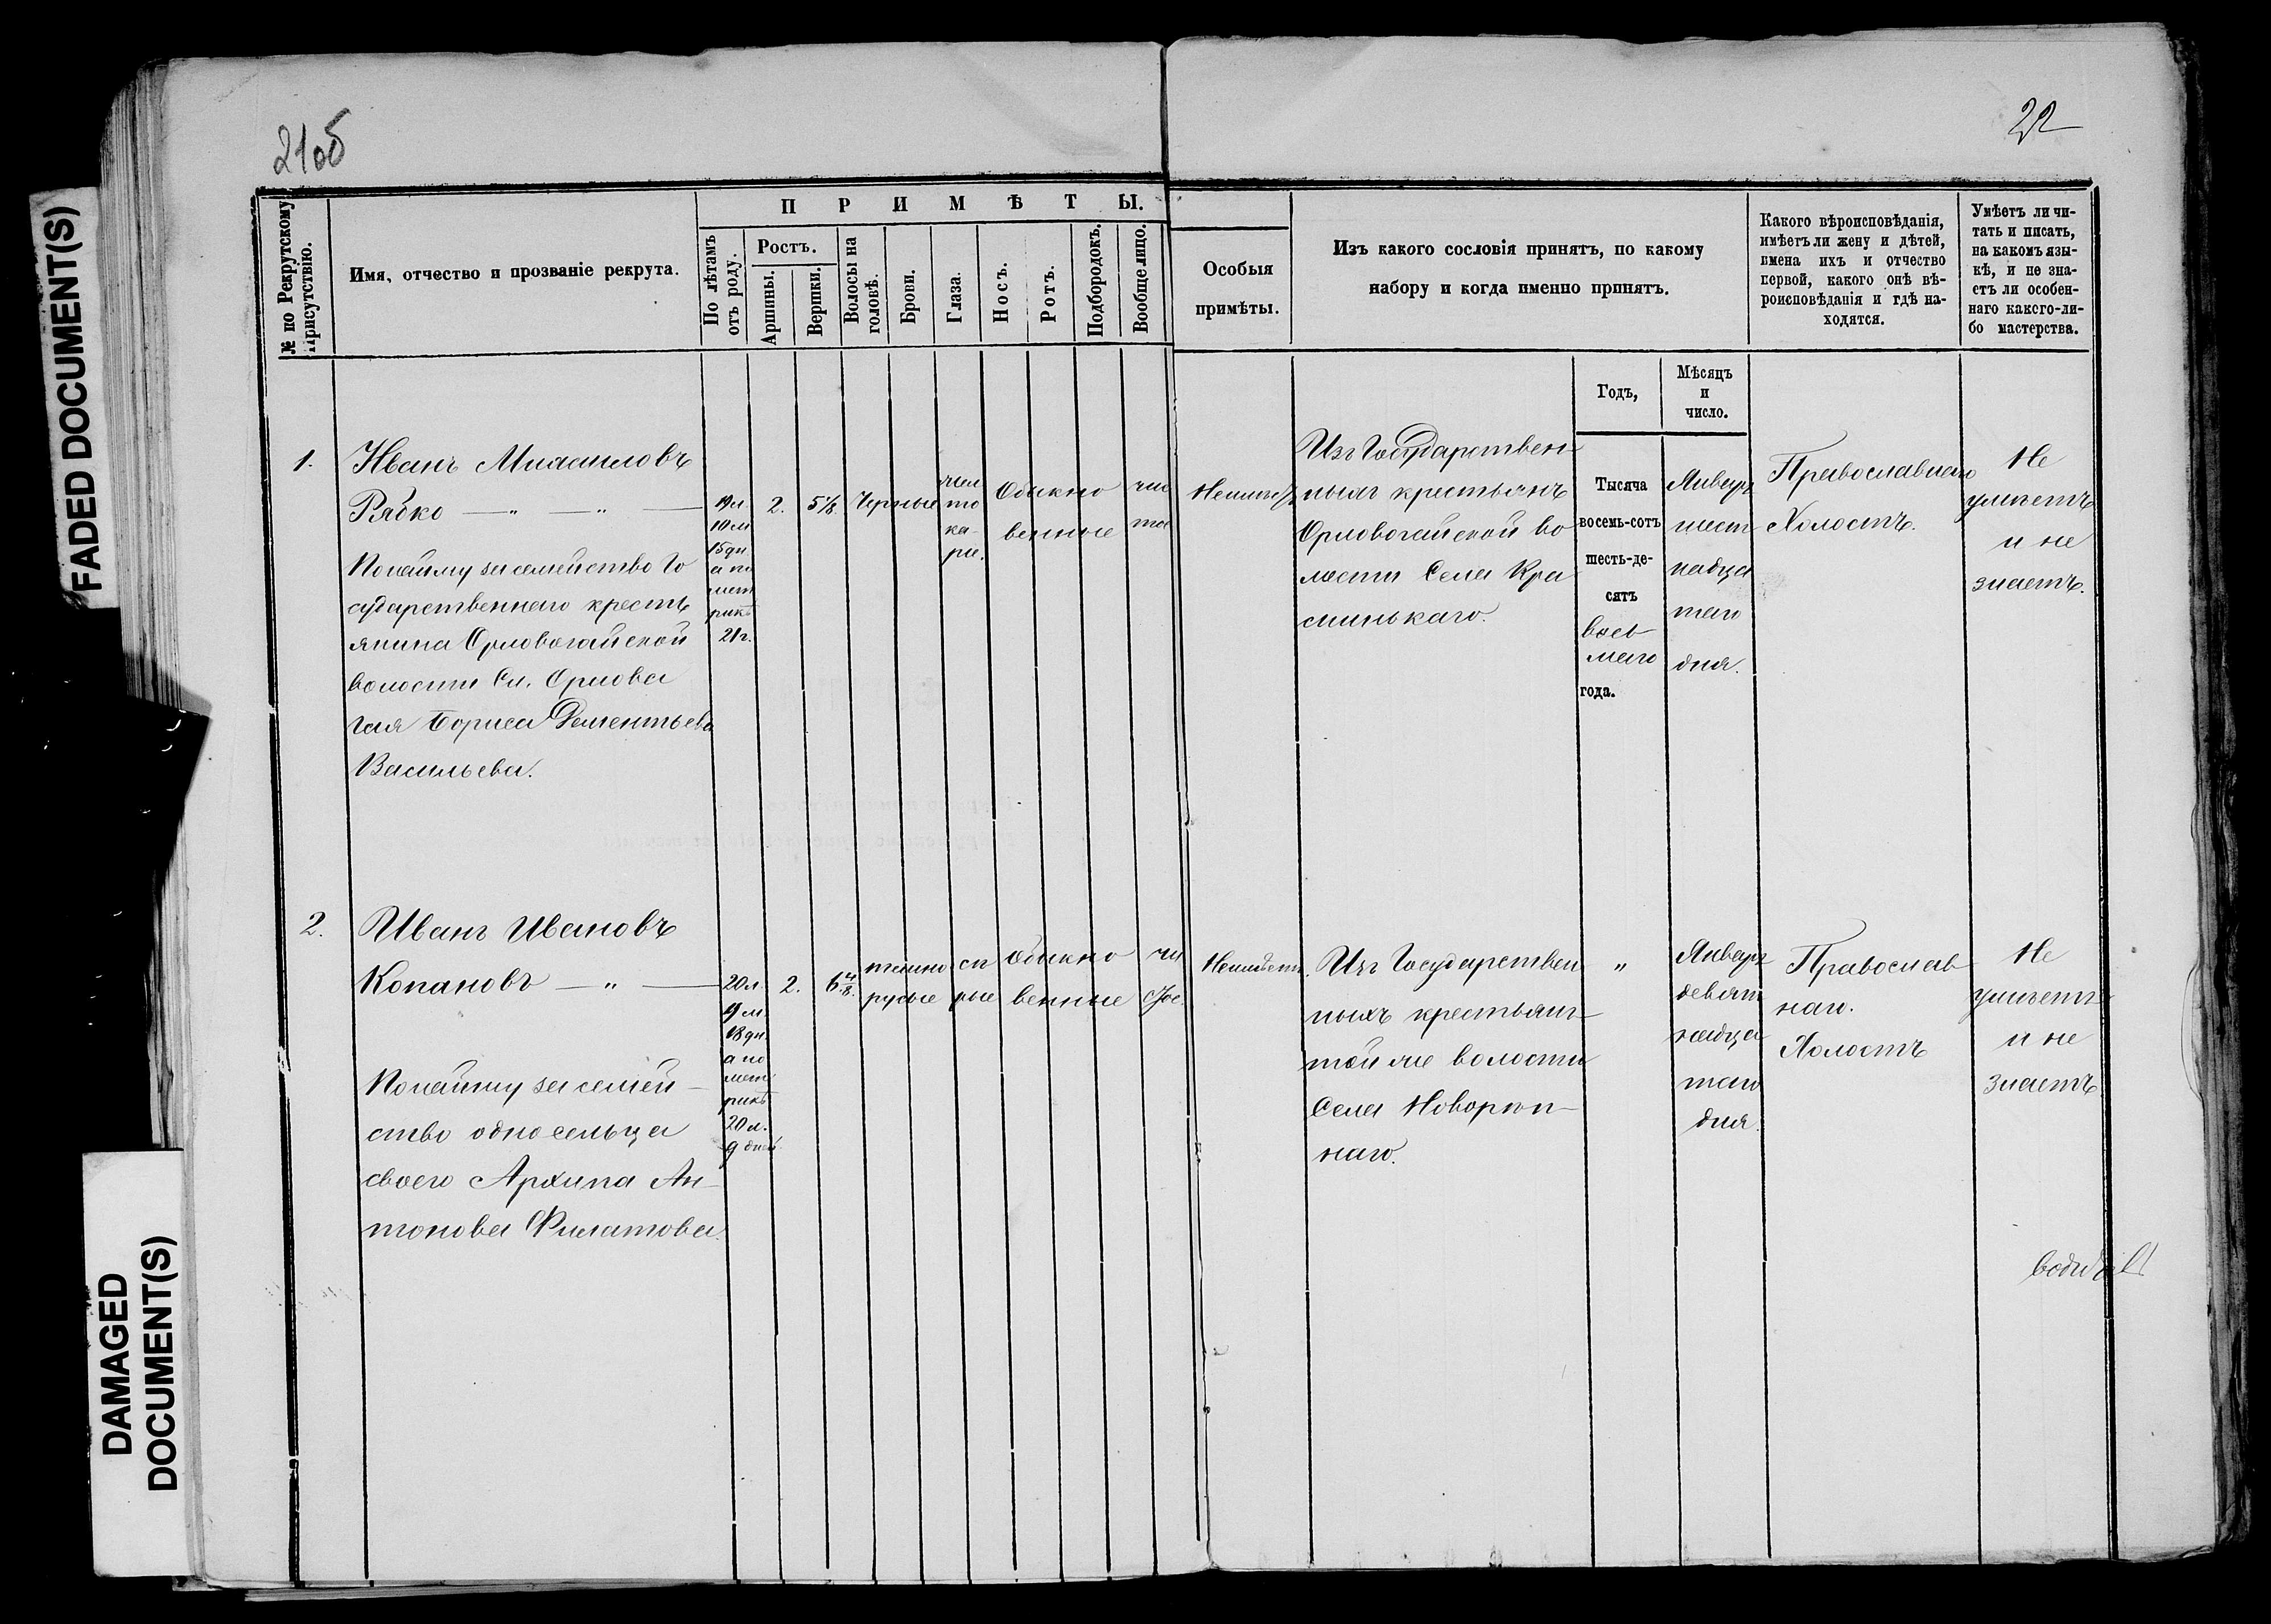 FADED DOCUMENT(S)
DAMAGED
DOCUMENT(S)
21об
22
№ по Рекрутскому
Присутствію.
Имя, отчество и прозваніе рекрута.
ПРИМѢТЫ.
По лѣтамъ
отъ роду.
Ростъ.
Аршины.
Вершки.
Волосы на
головѣ.
Брови.
Глаза.
Носъ.
Ротъ.
Подбородокъ.
Вообще лицо.
Особыя
примѣты.
Изъ какого сословія принятъ, по какому
набору и когда именно принятъ.
Годъ,
Мѣсяцъ
и
число.
Какого вѣроисповѣданія,
имѣетъ ли жену и дѣтей,
имена ихъ и отчество
первой, какого онѣ вѣ-
роисповѣданія и гдѣ на-
ходятся.
Умѣетъ ли чи-
тать и писать,
на какомъ язы-
кѣ, и не зна-
етъ ли особен-
наго какого-ли-
бо мастерства.
1.
Иванъ Михаиловъ
Рябко — „ — „ —
По найму за семейство Го
сударственнаго кресть
янина Орловогайской
волости Сл. Орлова
гая Бориса Дементьева
Васильева.
19 л.
10 м
15 дн
а по
мет
рикѣ
21 г.
2.
5 1/8
Черные
жел
то
ка-
рie.
Обыкно
венные
чис
тое
Неимѣе
Изъ Государствен-
ныхъ крестьянъ
Орловогайской во
лости Села Кра
синькаго.
Тысяча
восемь-сотъ
шесть-де-
сятъ
вось
маго
года.
Январ
шест
надца
таго
дня.
Православнаго
Холостъ.
Не
умѣетъ
и не
знаетъ.
2.
Иванъ Ивановъ
Копановъ — „ —
По найму за семей-
ство односельца
своего Архипа Ан-
тонова Филатова.
20 л.
9 м.
18 дн.
а по
мет
рикѣ
20 л.
9 дней
2.
6 4/8.
темно
русые
сѣ
рые
Обыкно
венные
чи
стое.
Неимѣет.
Изъ Государствен
ныхъ крестьянъ
той же волости
Села Новорѣп-
наго.
„
Январ
девят
надца
таго
дня.
Православ
наго.
Холостъ
Не
умѣетъ
и не
знаетъ.